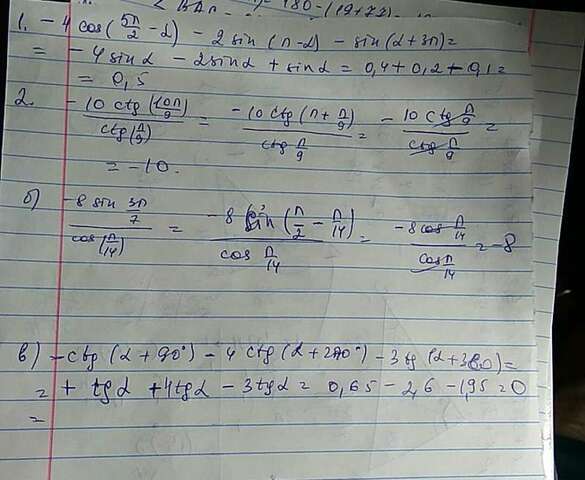 1. - 4 cos(5π/2 - α) - 2 sin (π - α) - sin (α + 3π) =
= - 4 sin α - 2 sin α + sin α = 0,4 + 0,2 + 0,1 =
= 0,5
2. -10 ctg (10π/9) / ctg (π/9) = -10 ctg (π + π/9) / ctg π/9 = -10 ctg π/9 / ctg π/9 =
= -10.
б) -8 sin 3π/7 / cos (π/14) = -8 sin (π/2 - π/14) / cos π/14 = -8 cos π/14 / cos π/14 = -8
в) - ctg (α + 90°) - 4 ctg (α + 270°) - 3 tg (α + 360) =
= + tg α + 4 tg α - 3 tg α = 0,65 - 2,6 - 1,95 = 0
=